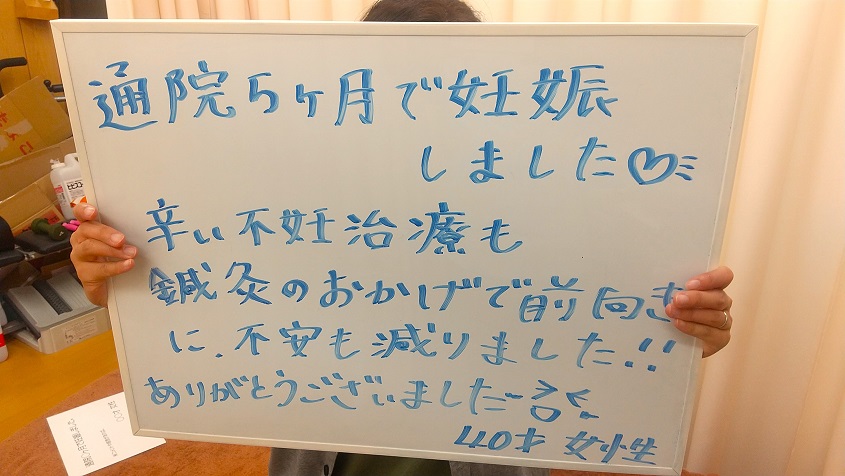 通院5ヶ月で妊娠
しました♡
辛い不妊治療も
鍼灸のおかげで前向き
に、不安も減りました!!
ありがとうございました
40才 女性